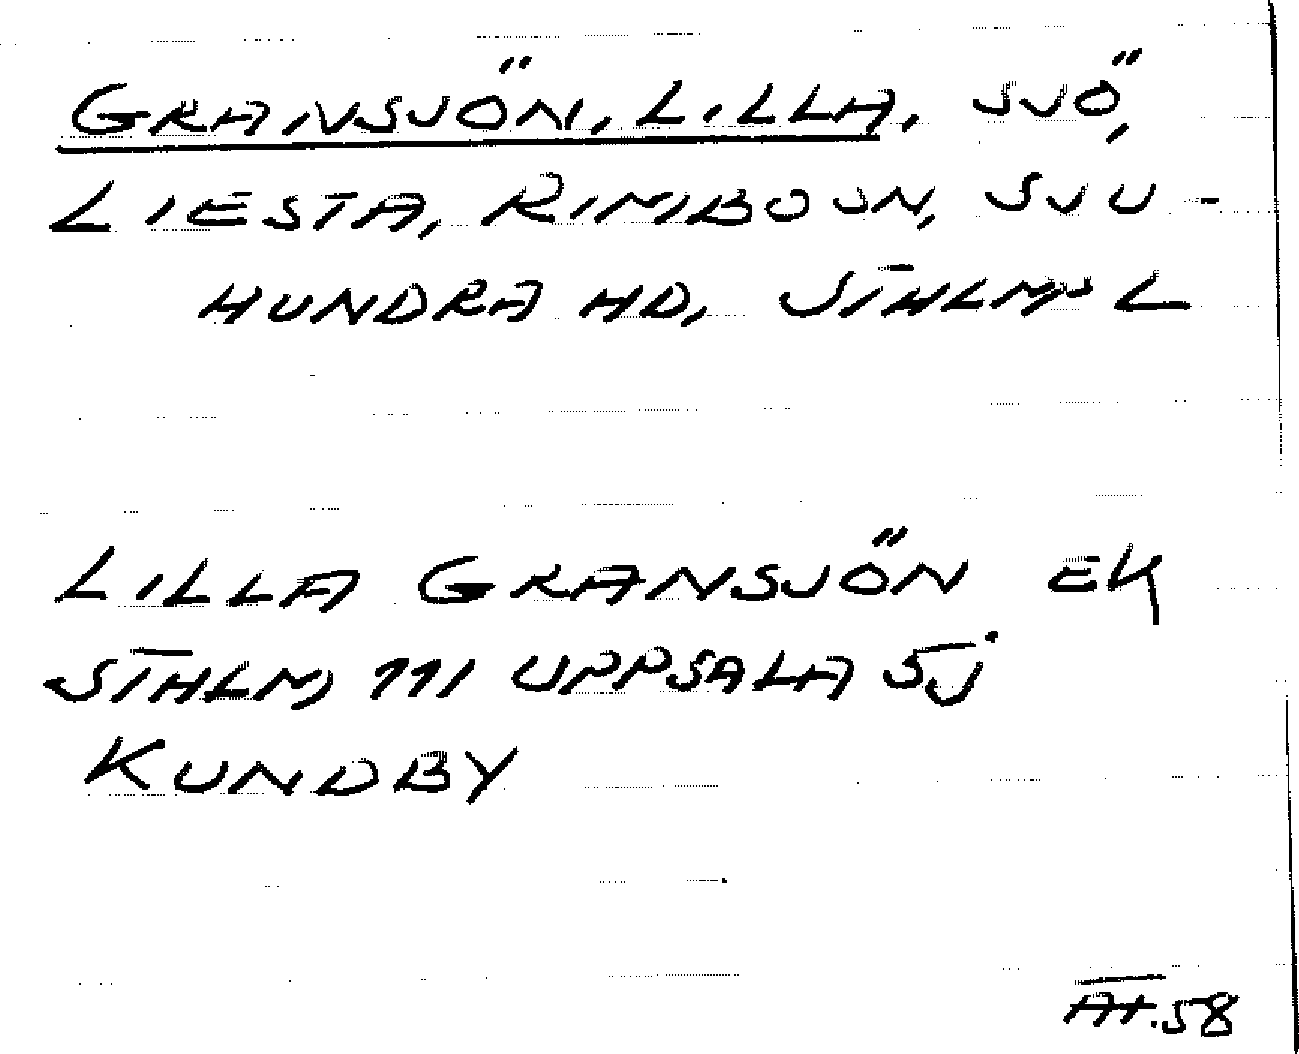 GRANSJÖN, LILLA, SJÖ,
LIESTA, RIMBO SN, SJU-
HUNDRA HD, STHLMS L
LILLA GRANSJÖN EK
STHLM, 111 UPPSALA SJ
KUNDBY